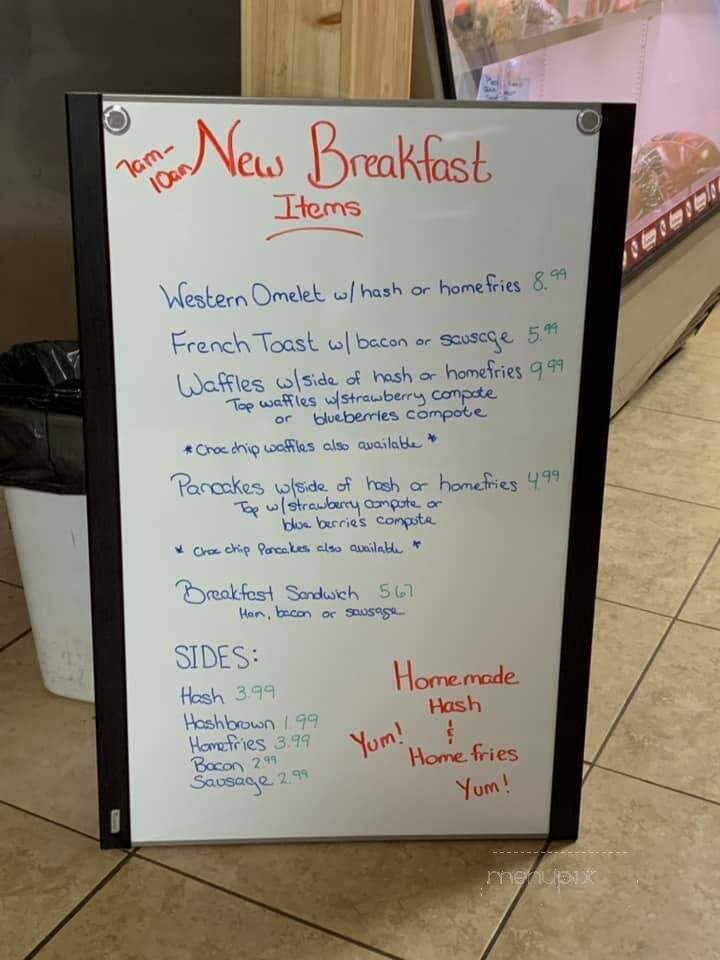 7am-
10am
New Breakfast
Items
Western Omelet w/hash or homefries 8.99
French Toast w/ bacon or sausage 5.99
Waffles w/side of hash or homefries 9.99
Top waffles w/strawberry compote
or blueberries compote
*Choc chip waffles also available*
Pancakes w/side of hash or homefries 4.99
Top w/strawberry compote or
blue berries compote
* Choc chip Pancakes also available *
Breakfast Sandwich 5.67
Ham, bacon or sausage
SIDES:
Hash 3.99
Hashbrown 1.99
Homefries 3.99
Bacon 2.99
Sausage 2.99
Homemade
Hash
&
Home fries
Yum!
Yum!
menupix